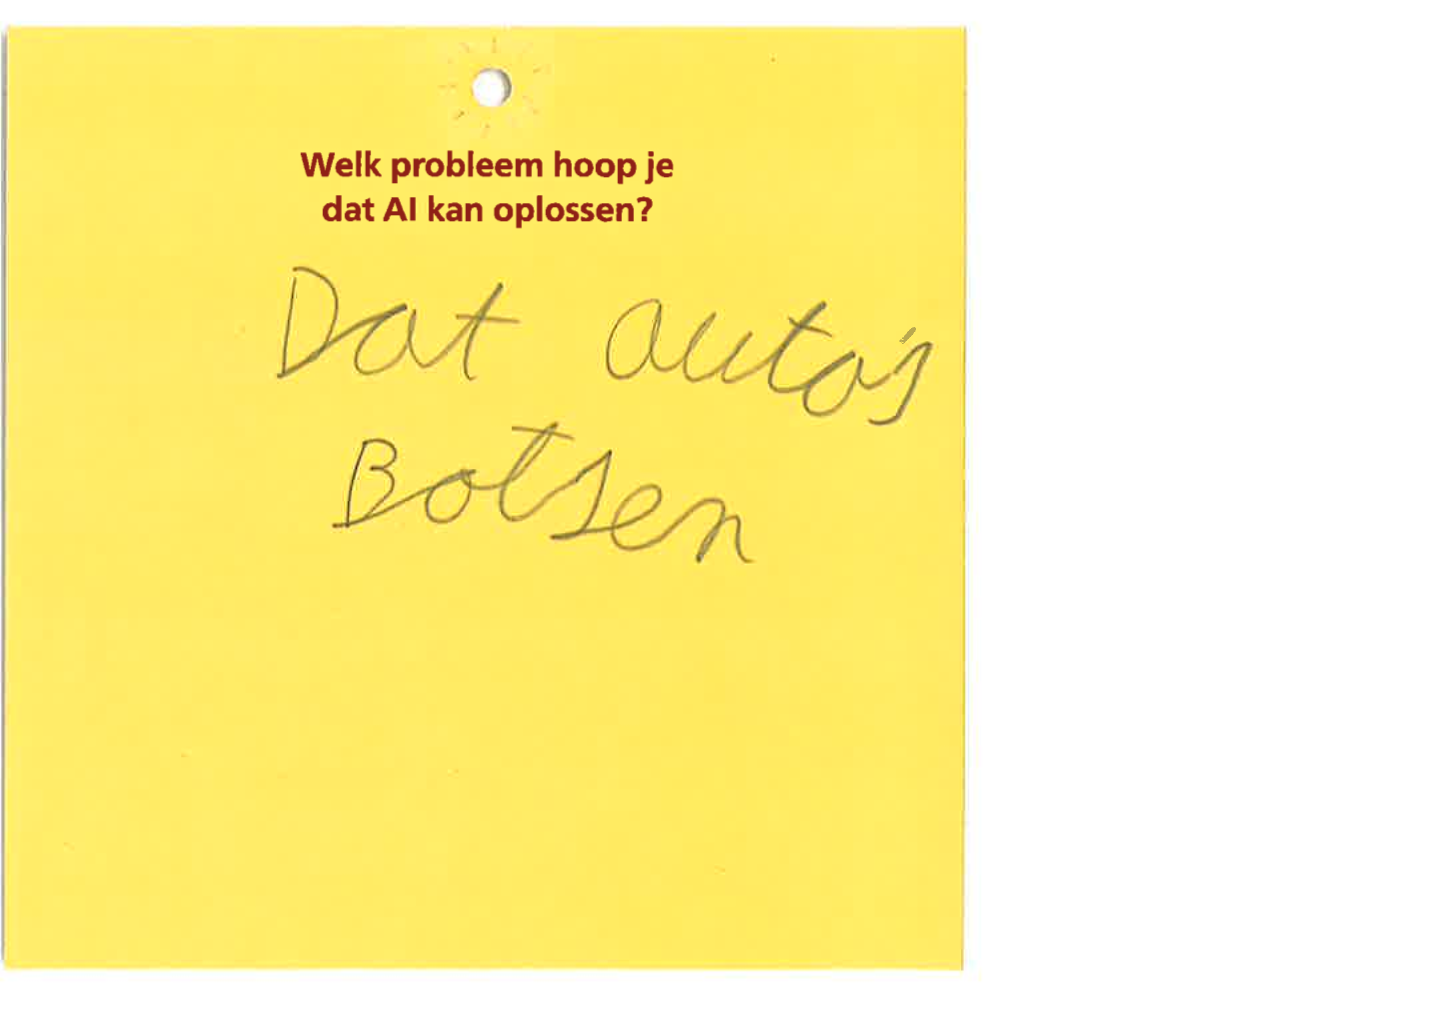 Welk probleem hoop je
dat AI kan oplossen?
Dat auto's
Botsen